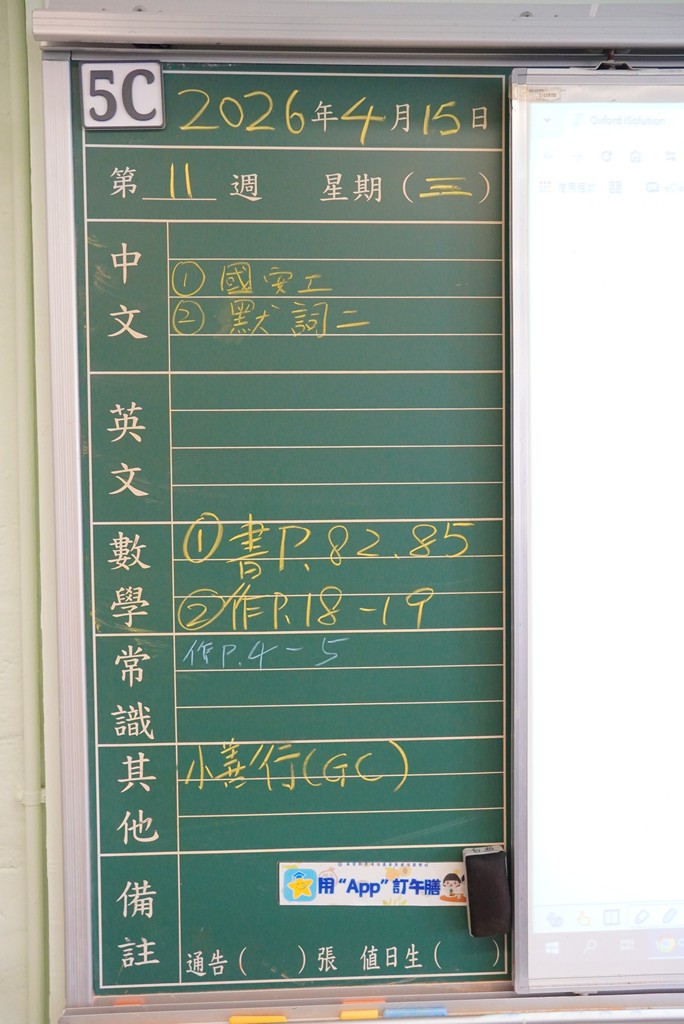 5C
2026年4月15日
第 11 週 星期(三)
中文
① 國安工
② 默詞二
英文
數學
① 書P.82.85
② 作P.18-19
常識
作P.4-5
其他
小善行(GC)
備註
用“App”訂午膳
通告( )張 值日生( )
Oxford iSolution